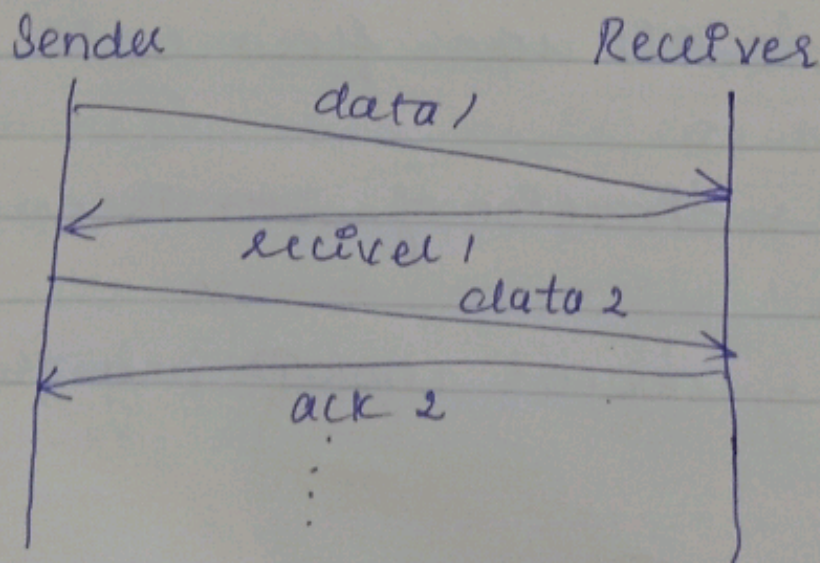 Sender Receiver
data 1
reciver 1
data 2
ack 2